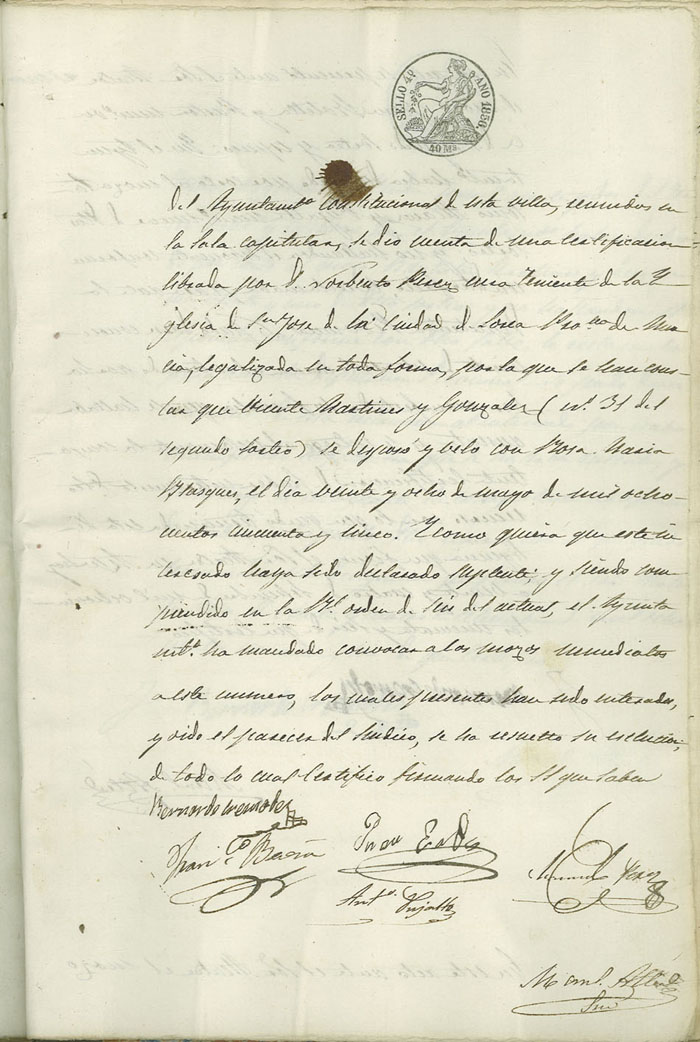 SELLO 4º AÑO 1856.
40 Ms.
del Ayuntamto. constitucional de esta villa, reunidos en
la sala capitular, se dio cuenta de una certificacion
librada por D. Norberto Perez cura Teniente de la Y-
glesia de Sn. Jose de la Ciudad de Lorca Prova. de Mur
cia, legalizada en toda forma, por la que se hace cons-
tar que Vicente Martines y Gonzalez (nº. 31 del
segundo sorteo) se desposó y velo con Rosa Maria
Blasques, el dia veinte y ocho de mayo de mil ocho-
cientos cincuenta y cinco. Y como quiera que este in
teresado haya sido declarado suplente, y siendo com
prendido en la Rl. orden de seis del actual, el Ayunta
mto. ha mandado convocar a los mozos inmediatos
a este numero, los cuales presentes han sido enterados,
y oido el parecer del Sindico, se ha resuelto su esclusion,
de todo lo cual certifico firmando los SS. que saben
Bernardo
Franco. Baeza
Juan
Manuel Perez
Anto.
Manl.
Srio